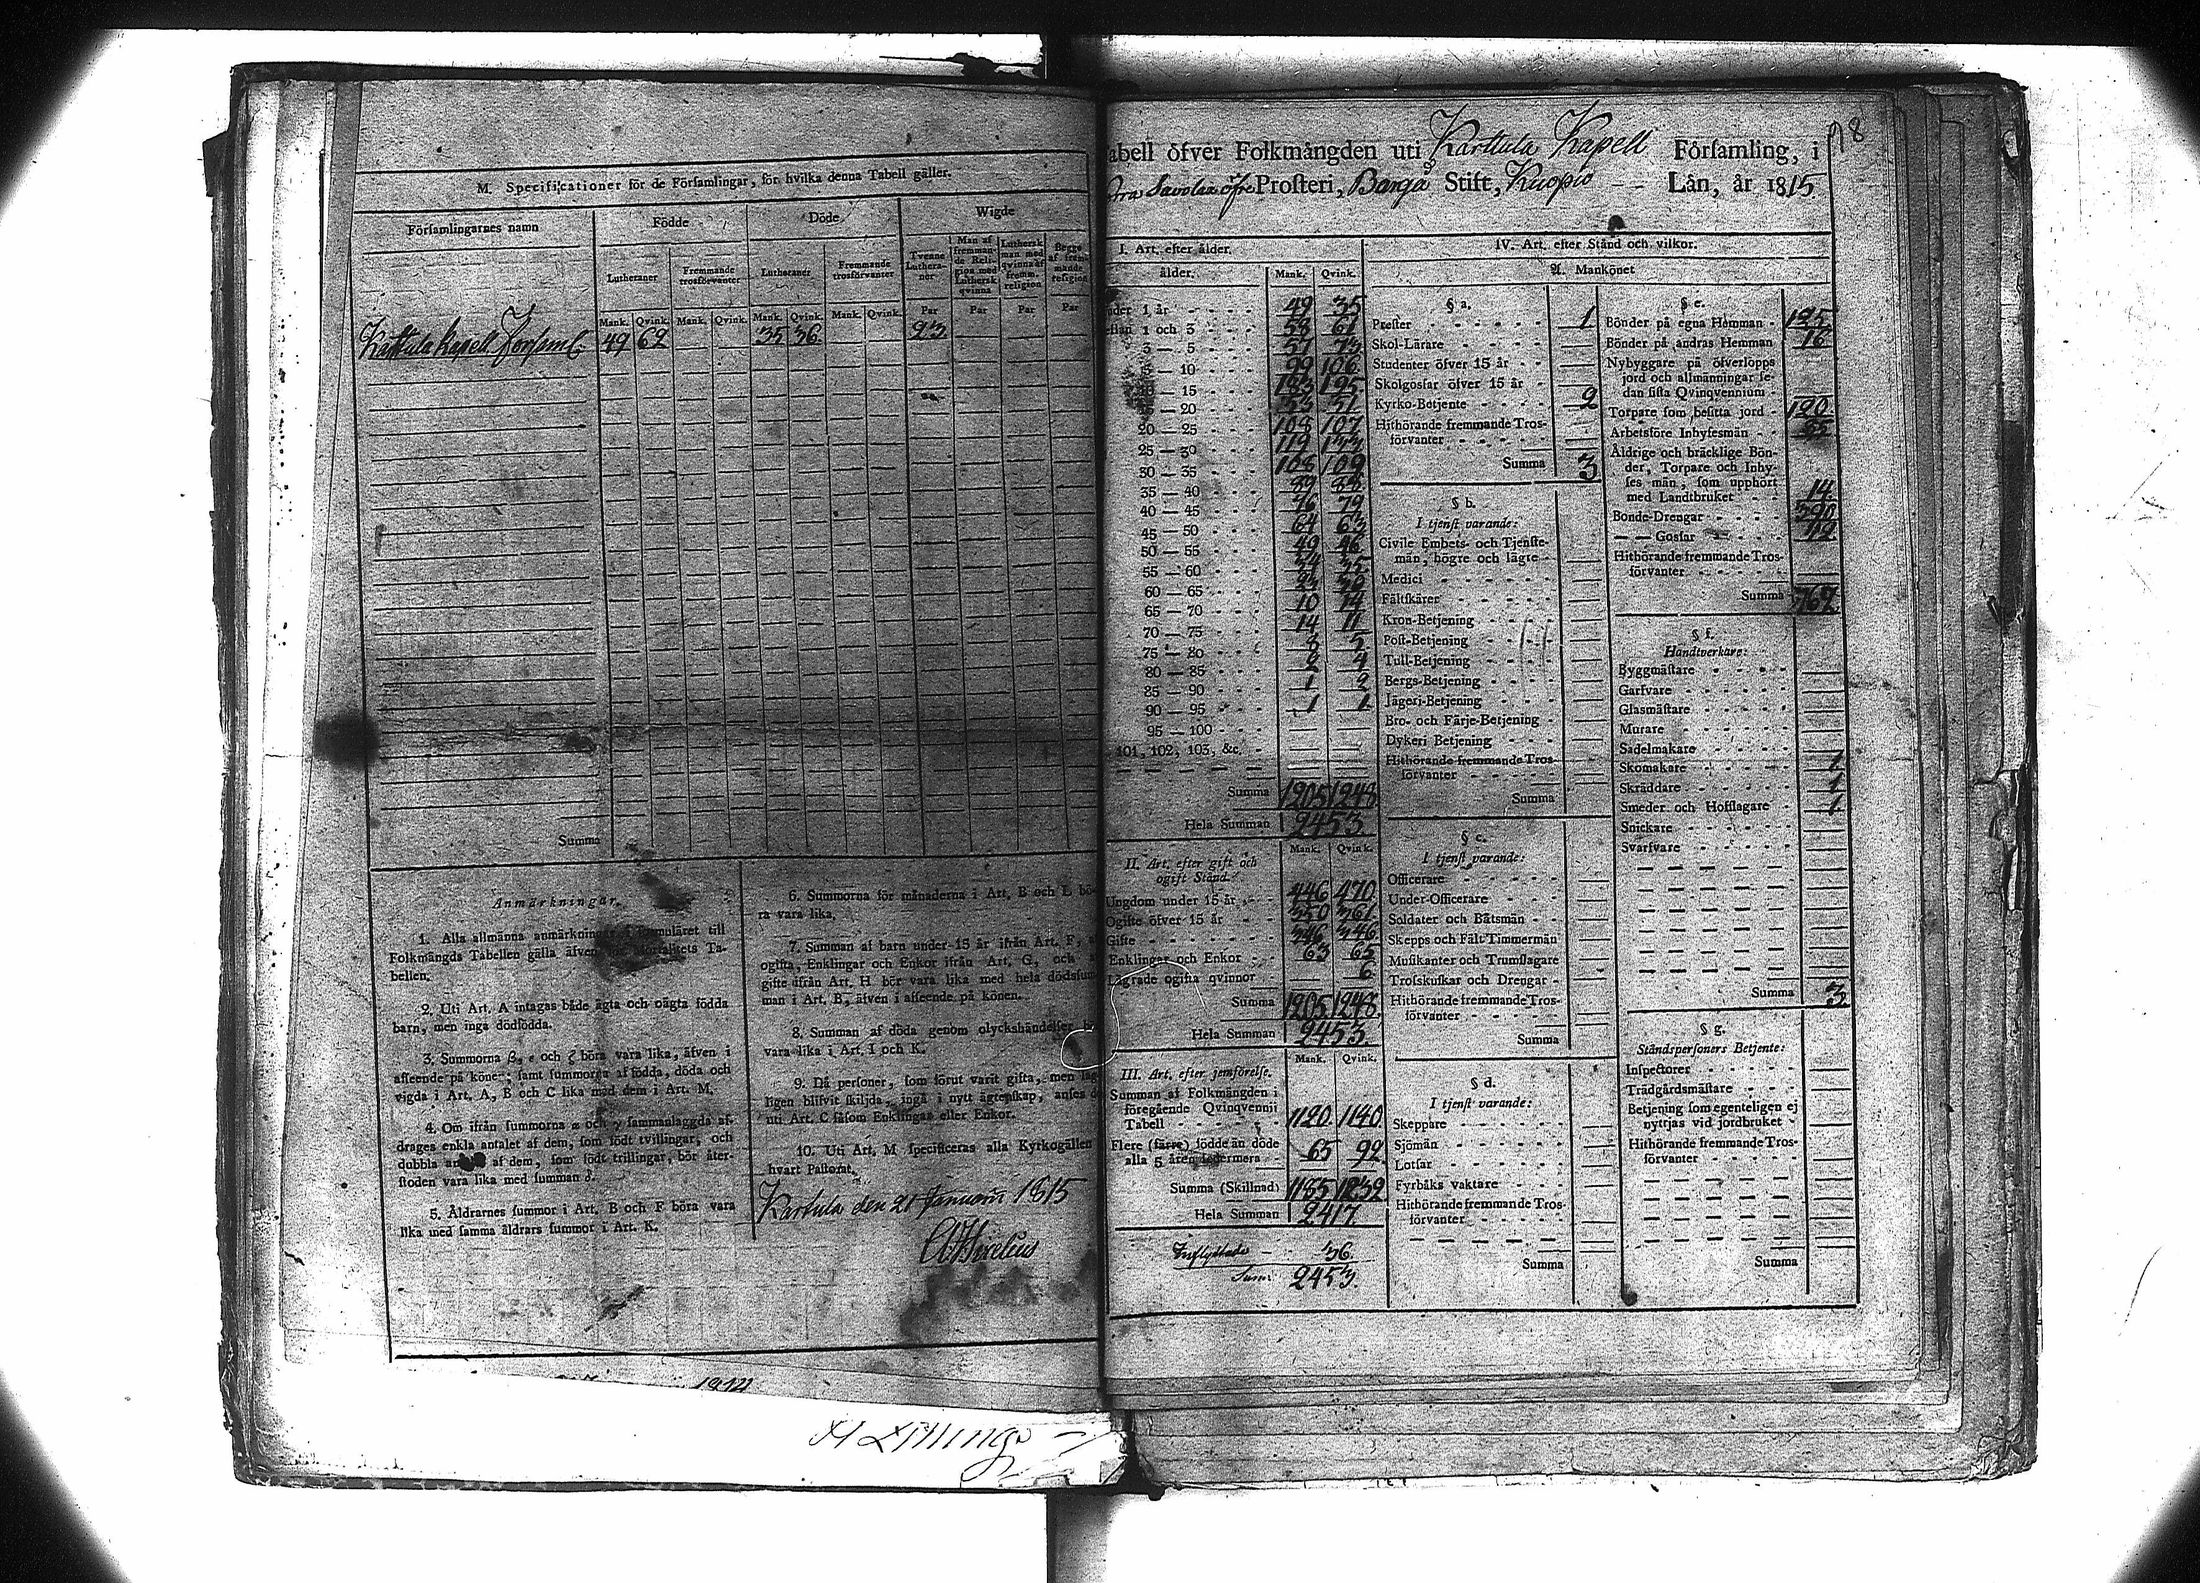 M. Specificationer för de Församlingar, för hvilka denna Tabell gäller.
Församlingarnes namn
Födde
Döde
Wigde
Lutheraner
Fremmande trosförvanter
Lutheraner
Fremmande trosförvanter
Tvenne Lutheraner
Man af fremmande Religion med Luthersk qvinna
Luthersk man med qvinna af fremm. religion
Begge af fremmande religion
Mank. Qvink. Mank. Qvink. Mank. Qvink. Mank. Qvink. Par Par Par Par
Karttula Kapell Församl. 49 62 35 36 23
Summa
Anmärkningar.
1. Alla allmänna anmärkningar i formuläret till
Folkmängds Tabellen gälla äfven Mortalitets Ta-
bellen.
2. Uti Art. A intagas både ägta och oägta födda
barn, men inga dödfödda.
3. Summorna β, ε och ζ böra vara lika, äfven i
afseende på könet; samt summorna af födda, döda och
vigda i Art. A, B och C lika med dem i Art. M.
4. Om ifrån summorna α och γ sammanlaggda af-
drages enkla antalet af dem, som födt tvillingar, och
dubbla af dem, som födt trillingar, bör åter-
stoden vara lika med summan δ.
5. Åldrarnes summor i Art. B och F böra vara
lika med samma åldrars summor i Art. K.
6. Summorna för månaderna i Art. B och L bö-
ra vara lika.
7. Summan af barn under 15 år ifrån Art. F,
ogifta, Enklingar och Enkor ifrån Art. G, och
gifte ifrån Art. H bör vara lika med hela dödssum
man i Art. B, äfven i afseende på könen.
8. Summan af döda genom olyckshändelser
vara lika i Art. I och K.
9. Då personer, som förut varit gifta, men
ligen blifvit skiljda, ingå i nytt ägtenskap, anses
uti Art. C såsom Enklingar eller Enkor.
10. Uti Art. M specificeras alla Kyrkogällen
hvart Pastorat.
Kartula den 21 Januarii 1815
1814
98
abell öfver Folkmängden uti Karttula Kapell Församling, i
Savolax öfre Prosteri, Borgå Stift, Kuopio Län, år 1815.
I. Art. efter ålder.
ålder. Mank. Qvink.
nder 1 år 49 35
ellan 1 och 3 58 61
3 — 5 57 73
5 — 10 99 106
10 — 15 183 195
15 — 20 53 51
20 — 25 108 107
25 — 30 119 133
30 — 35 108 109
35 — 40 89 88
40 — 45 76 79
45 — 50 64 63
50 — 55 49 46
55 — 60 34 35
60 — 65 23 30
65 — 70 10 14
70 — 75 14 11
75 — 80 8 5
80 — 85 2 4
85 — 90 1 2
90 — 95 1 1
95 — 100
101, 102, 103, &c.
Summa 1205 1248
Hela Summan 2453
II. Art. efter gift och
ogift Stånd.
Mank. Qvink.
Ungdom under 15 år 446 470
Ogifte öfver 15 år 350 361
Gifte 346 346
Enklingar och Enkor 63 65
Lägrade ogifta qvinnor 6
Summa 1205 1248
Hela Summan 2453
Mank. Qvink.
III. Art. efter jemförelse.
Summan af Folkmängden i
föregående Qvinqvennii
Tabell 1120 1140
Flere (färre) födde än döde
alla 5 åren sedermera 65 92
Summa (Skillnad) 1185 1232
Hela Summan 2417
Inflyttade 36
Sum: 2453.
IV. Art. efter Stånd och vilkor.
A. Mankönet
§ a.
Prester 1
Skol-Lärare
Studenter öfver 15 år
Skolgossar öfver 15 år
Kyrko-Betjente 2
Hithörande fremmande Tros-
förvanter
Summa 3
§ b.
I tjenst varande:
Civile Embets- och Tjenste-
män, högre och lägre
Medici
Fältskärer
Kron-Betjening
Post-Betjening
Tull-Betjening
Bergs-Betjening
Jägeri-Betjening
Bro- och Färje-Betjening
Dykeri Betjening
Hithörande fremmande Tros-
förvanter
Summa
§ c.
I tjenst varande:
Officerare
Under-Officerare
Soldater och Båtsmän
Skepps och Fält Timmermän
Musikanter och Trumslagare
Trosskuskar och Drengar
Hithörande fremmande Tros-
förvanter
Summa
§ d.
I tjenst varande:
Skeppare
Sjömän
Lotsar
Fyrbåks vaktare
Hithörande fremmande Tros-
förvanter
Summa
§ e.
Bönder på egna Hemman 125
Bönder på andras Hemman 16
Nybyggare på öfverlopps
jord och allmänningar se-
dan sista Qvinqvennium
Torpare som besitta jord 120
Arbetsföre Inhysesmän 85
Åldrige och bräcklige Bön-
der, Torpare och Inhy-
ses män, som upphört
med Landtbruket 14
Bonde-Drengar 390
— — Gossar 12
Hithörande fremmande Tros-
förvanter
Summa 762
§ f.
Handtverkare:
Byggmästare
Garfvare
Glasmästare
Murare
Sadelmakare
Skomakare 1
Skräddare 1
Smeder och Hofslagare 1
Snickare
Svarfvare
Summa 3
§ g.
Ståndspersoners Betjente:
Inspectorer
Trädgårdsmästare
Betjening som egenteligen ej
nyttjas vid jordbruket
Hithörande fremmande Tros-
förvanter
Summa